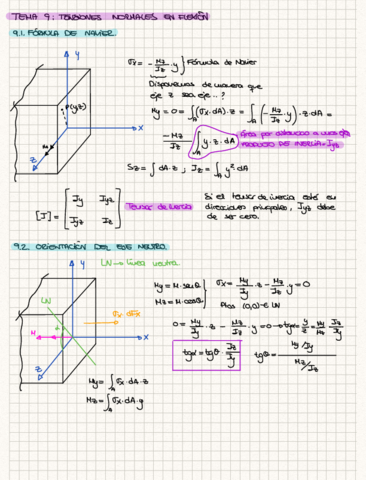 TEMA 9: TENSIONES NORMALES EN FLEXIÓN
9.1. FÓRMULA DE NAVIER
Y
P(y,z)
X
Z
σx = - Mz/Iz · y } Fórmula de Navier
Disponemos de manera que
eje z sea eje...?
My = 0 = ∫A (σx · dA) · z = ∫A (- Mz/Iz · y) · z · dA =
- Mz/Iz ∫A y · z · dA
Área por distancia a unos ejes
PRODUCTO DE INERCIA = Iyz
Sz = ∫ dA · z ; Iz = ∫A y² dA
[I] = [ Iy Iyz
Iyz Iz ]
Tensor de inercia
Si el tensor de inercia está en
direcciones principales, Iyz debe
de ser cero.
9.2 ORIENTACIÓN DEL EJE NEUTRO
Y
LN → línea neutra
LN
M
X
Z
My = M · senθ
Mz = M · cosθ
σx = My/Iy · z - Mz/Iz · y = 0
(0,0) ∈ LN
0 = My/Iy · z - Mz/Iz · y = 0 → tgα = y/z = My/Mz · Iz/Iy
tgα = tgθ · Iz/Iy
tgθ =
My/Iy
Mz/Iz
My = ∫A σx · dA · z
Mz = ∫A σx · dA · y